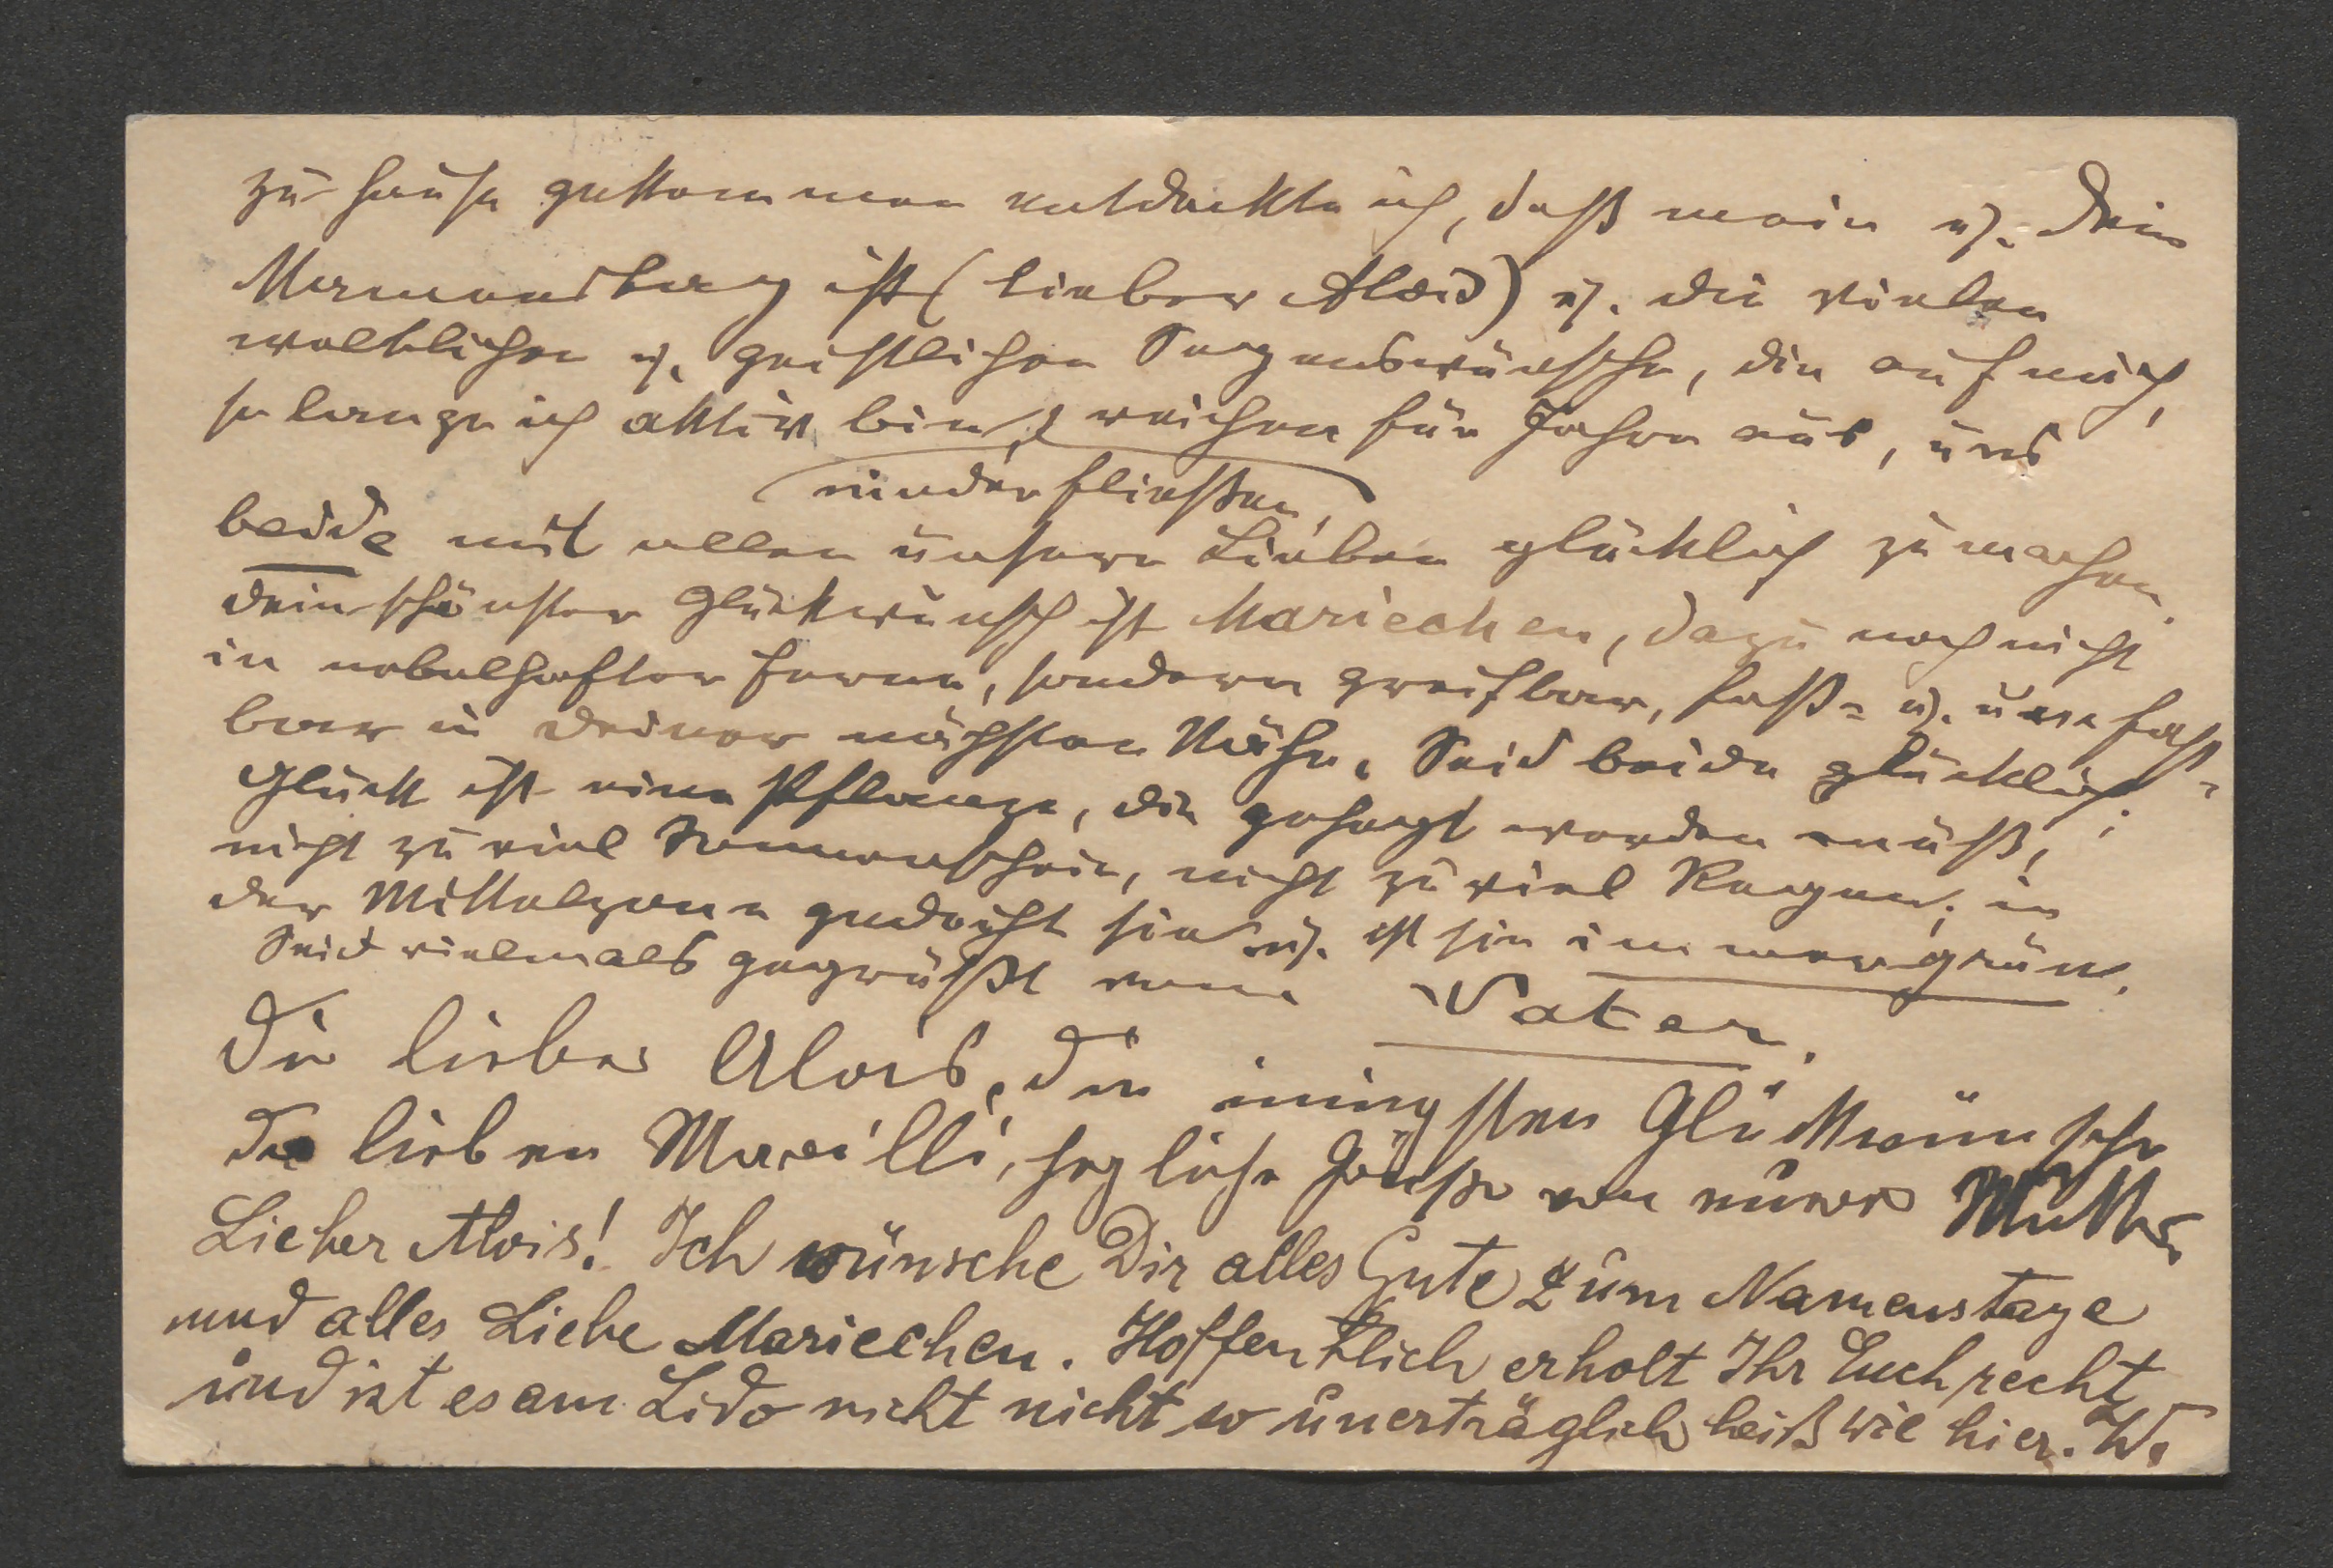 zu hause gekommen entdeckte ich, daß mein u. Dein
Namenstag ist (lieber Alois) u. die vielen
weltlichen u. geistlichen Segenswünsche, die auf mich,
so lange ich aktiv bin, reichen für Jahre aus, uns
niederfließen,
beide mit allen unsern Lieben glücklich zu machen.
Dein schönster Glückwunsch ist Mariechen, dazu noch nicht
in nebelhafter Ferne, sondern greifbar, faß= u. umfaß=
bar in Deiner nächsten Nähe. Seid beide glücklich;
Glück ist eine Pflanze, die gehegt werden muß,
nicht zu viel Sonnenschein, nicht zu viel Regen; in
der Mittelzone gedeiht sie u. ist sie immergrün.
Seid vielmals gegrüßt vom Vater.
Dir lieber Alois, die innigsten Glückwünsche
der lieben Marilli, herzliche Grüße von eurer Mutter
Lieber Alois! Ich wünsche Dir alles Gute zum Namenstage
und alles Liebe Mariechen. Hoffentlich erholt Ihr Euch recht
und ist es am Lido nicht nicht so unerträglich heiß wie hier. W.